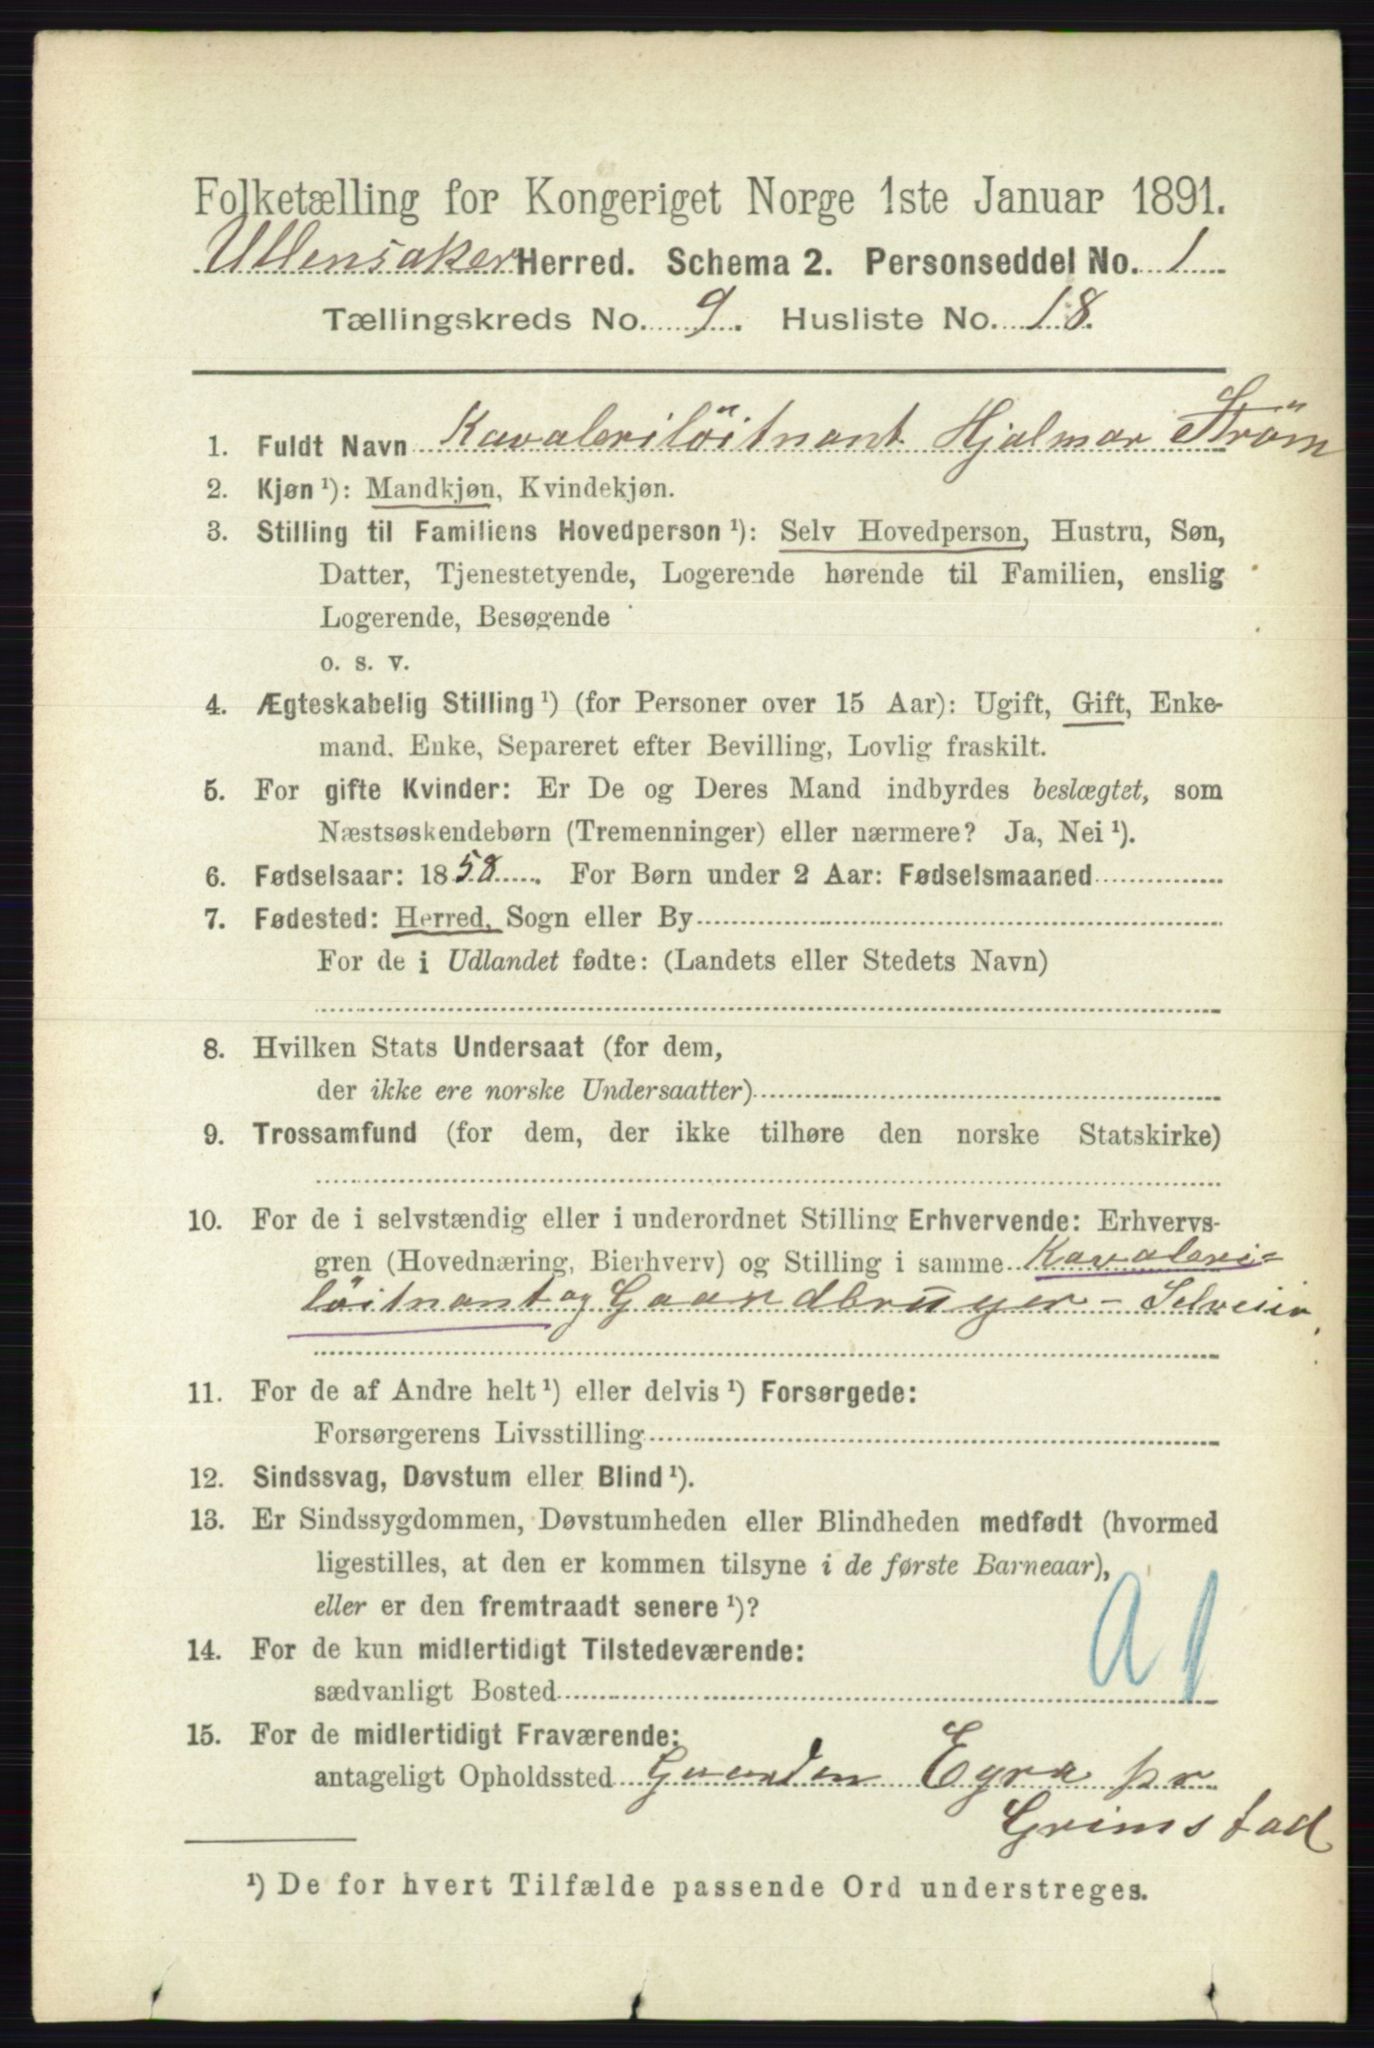 Folketælling for Kongeriget Norge 1ste Januar 1891.
Ullensaker Herred. Schema 2. Personseddel No. 1
Tællingskreds No. 9. Husliste No. 18.
1. Fuldt Navn Kavaleriløitnant Hjalmar Strøm
2. Kjøn ¹): Mandkjøn, Kvindekjøn.
3. Stilling til Familiens Hovedperson ¹): Selv Hovedperson, Hustru, Søn,
Datter, Tjenestetyende, Logerende hørende til Familien, enslig
Logerende, Besøgende
o. s. v.
4. Ægteskabelig Stilling ¹) (for Personer over 15 Aar): Ugift, Gift, Enke-
mand. Enke, Separeret efter Bevilling, Lovlig fraskilt.
5. For gifte Kvinder: Er De og Deres Mand indbyrdes beslægtet, som
Næstsøskendebørn (Tremenninger) eller nærmere? Ja, Nei ¹).
6. Fødselsaar: 1858. For Børn under 2 Aar: Fødselsmaaned
7. Fødested: Herred, Sogn eller By
For de i Udlandet fødte: (Landets eller Stedets Navn)
8. Hvilken Stats Undersaat (for dem,
der ikke ere norske Undersaatter)
9. Trossamfund (for dem, der ikke tilhøre den norske Statskirke)
10. For de i selvstændig eller i underordnet Stilling Erhvervende: Erhvervs-
gren (Hovednæring, Bierhverv) og Stilling i samme Kavaleri=
løitnant og Gaardbruger - Selveier
11. For de af Andre helt ¹) eller delvis ¹) Forsørgede:
Forsørgerens Livsstilling
12. Sindssvag, Døvstum eller Blind ¹).
13. Er Sindssygdommen, Døvstumheden eller Blindheden medfødt (hvormed
ligestilles, at den er kommen tilsyne i de første Barneaar),
eller er den fremtraadt senere ¹)?
A1
14. For de kun midlertidigt Tilstedeværende:
sædvanligt Bosted
15. For de midlertidigt Fraværende:
antageligt Opholdssted Gaarden Egra pr
Grimstad
¹) De for hvert Tilfælde passende Ord understreges.